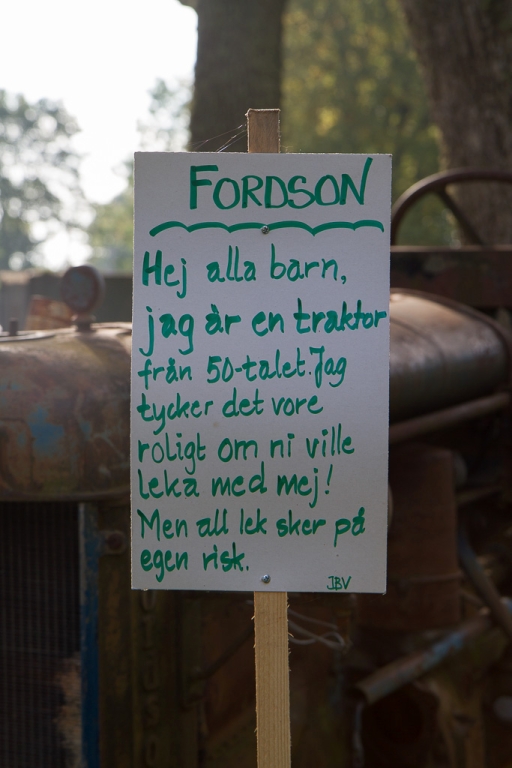 FORDSON
Hej alla barn,
jag är en traktor
från 50-talet. Jag
tycker det vore
roligt om ni ville
leka med mej!
Men all lek sker på
egen risk.
JBV